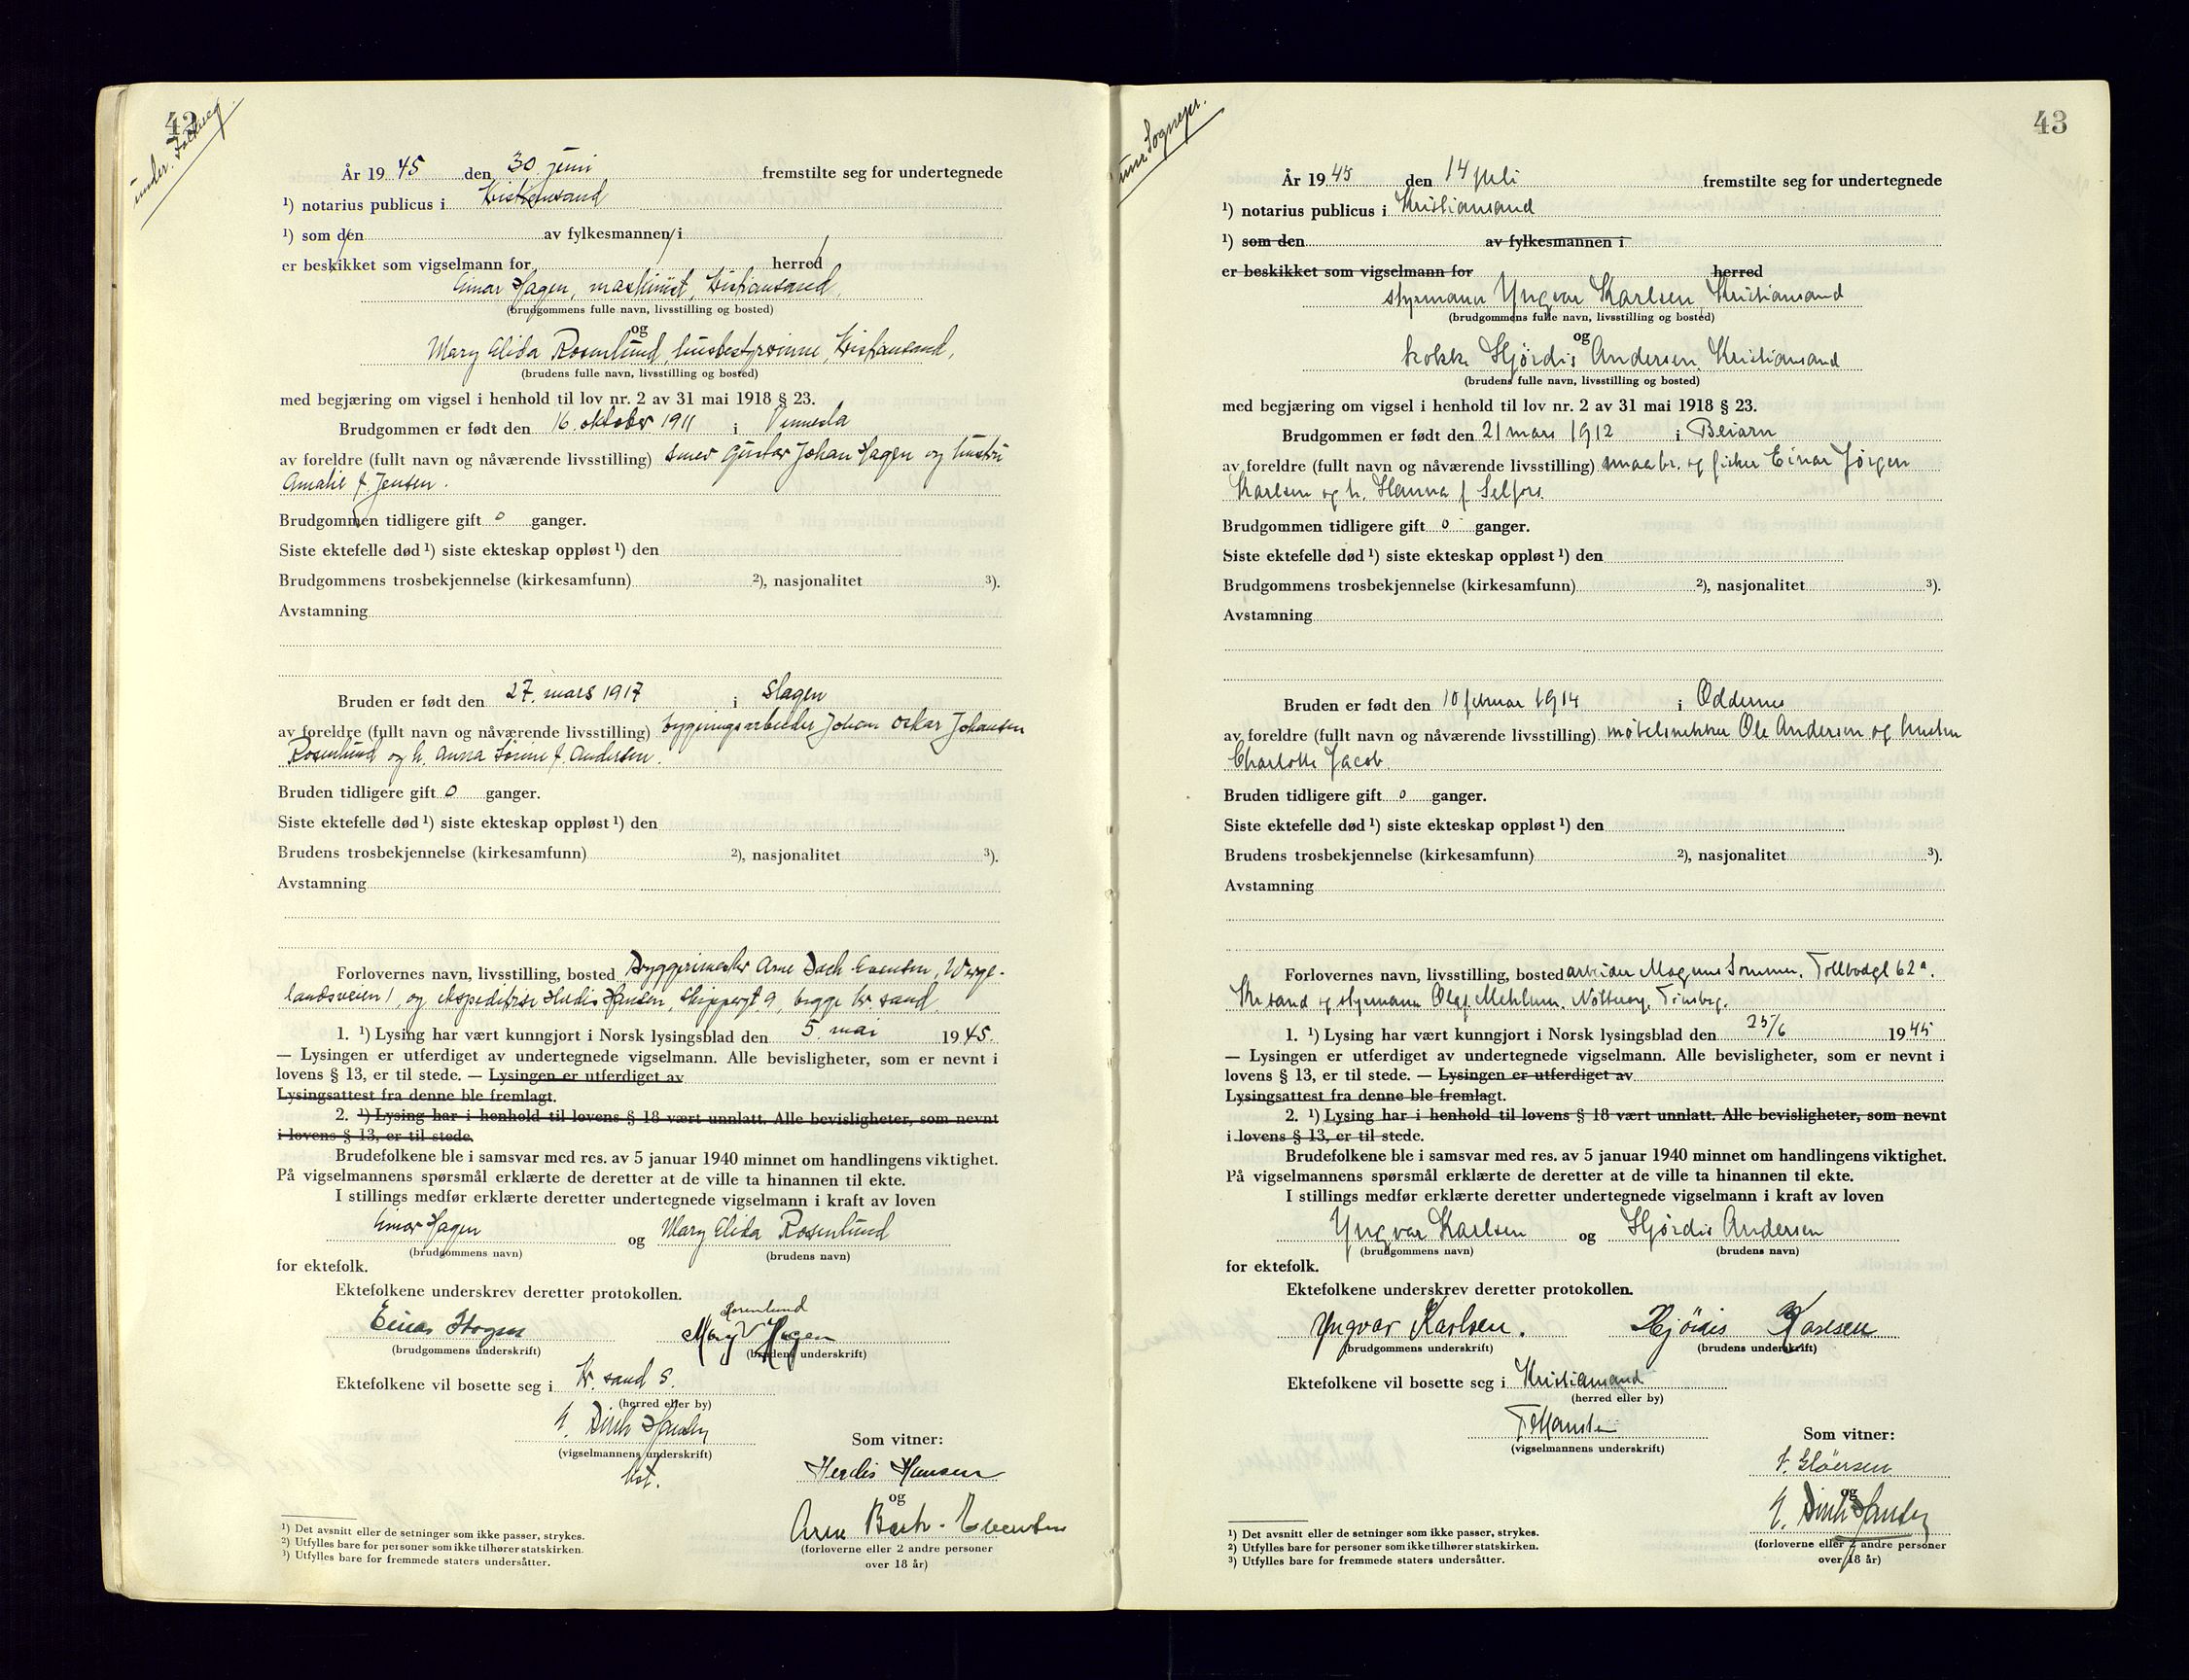 42
År 1945 den 30. juni fremstilte seg for undertegnede
¹) notarius publicus i Kristiansand
¹) som den av fylkesmannen i
er beskikket som vigselmann for herred
Einar Hagen, maskinist, Kristiansand,
(brudgommens fulle navn, livsstilling og bosted)
og
Mary Elida Rosenlund, husbestyrerinne, Kristiansand,
(brudens fulle navn, livsstilling og bosted)
med begjæring om vigsel i henhold til lov nr. 2 av 31 mai 1918 § 23.
Brudgommen er født den 16. oktober 1911 i Vennesla
av foreldre (fullt navn og nåværende livsstilling) Gustav Johan Hagen og hustru
Amalie f. Jensen.
Brudgommen tidligere gift 0 ganger.
Siste ektefelle død ¹) siste ekteskap oppløst ¹) den
Brudgommens trosbekjennelse (kirkesamfunn) ²), nasjonalitet ³).
Avstamning
Bruden er født den 27. mars 1917 i Slagen
av foreldre (fullt navn og nåværende livsstilling) bygningsarbeider Johan Oskar Johansen
Rosenlund og h. Anna f. Andersen.
Bruden tidligere gift 0 ganger.
Siste ektefelle død ¹) siste ekteskap oppløst ¹) den
Brudens trosbekjennelse (kirkesamfunn) ²), nasjonalitet ³).
Avstamning
Forlovernes navn, livsstilling, bosted Bryggerimester Arne Bach-Evensen, Werge-
landsveien 1, og ekspeditrise Herdis Hansen, Skippergt. 9, begge Kr.sand
1. ¹) Lysing har vært kunngjort i Norsk lysingsblad den 5. mai 1945.
— Lysingen er utferdiget av undertegnede vigselmann. Alle bevisligheter, som er nevnt i
lovens § 13, er til stede. — Lysingen er utferdiget av
Lysingsattest fra denne ble fremlagt.
2. ¹) Lysing har i henhold til lovens § 18 vært unnlatt. Alle bevisligheter, som nevnt
i lovens § 13, er til stede.
Brudefolkene ble i samsvar med res. av 5 januar 1940 minnet om handlingens viktighet.
På vigselmannens spørsmål erklærte de deretter at de ville ta hinannen til ekte.
I stillings medfør erklærte deretter undertegnede vigselmann i kraft av loven
Einar Hagen og Mary Elida Rosenlund
(brudgommens navn) (brudens navn)
for ektefolk.
Ektefolkene underskrev deretter protokollen.
Rosenlund
Einar Hagen Mary Hagen
(brudgommens underskrift) (brudens underskrift)
Ektefolkene vil bosette seg i Kr.sand S.
(herred eller by)
E. Dirch Hansen
(vigselmannens underskrift)
kst.
Som vitner:
Herdis Hansen
og
Arne Bach-Evensen
(forloverne eller 2 andre personer
over 18 år)
¹) Det avsnitt eller de setninger som ikke passer, strykes.
²) Utfylles bare for personer som ikke tilhører statskirken.
³) Utfylles bare for fremmede staters undersåtter.
43
År 1945 den 14 juli fremstilte seg for undertegnede
¹) notarius publicus i Kristiansand
¹) som den av fylkesmannen i
er beskikket som vigselmann for herred
styrmann Yngvar Karlsen, Kristiansand
(brudgommens fulle navn, livsstilling og bosted)
og
kokke Hjørdis Andersen, Kristiansand
(brudens fulle navn, livsstilling og bosted)
med begjæring om vigsel i henhold til lov nr. 2 av 31 mai 1918 § 23.
Brudgommen er født den 21 mars 1912 i Beiarn
av foreldre (fullt navn og nåværende livsstilling) smaabr. og fisker Einar Jørgen
Karlsen og h. Hanna f. Selfors.
Brudgommen tidligere gift 0 ganger.
Siste ektefelle død ¹) siste ekteskap oppløst ¹) den
Brudgommens trosbekjennelse (kirkesamfunn) ²), nasjonalitet ³).
Avstamning
Bruden er født den 10 februar 1914 i Oddernes
av foreldre (fullt navn og nåværende livsstilling) møbelsnekker Ole Andersen og hustru
Charlotte Jacob.
Bruden tidligere gift 0 ganger.
Siste ektefelle død ¹) siste ekteskap oppløst ¹) den
Brudens trosbekjennelse (kirkesamfunn) ²), nasjonalitet ³).
Avstamning
Forlovernes navn, livsstilling, bosted arbeider Magnus Sommer, Tollbodgt 62ª.
Kr.sand og styrmann Olaf Mehlum, Nøtterøy, Tønsberg.
1. ¹) Lysing har vært kunngjort i Norsk lysingsblad den 25/6 1945
— Lysingen er utferdiget av undertegnede vigselmann. Alle bevisligheter, som er nevnt i
lovens § 13, er til stede. — Lysingen er utferdiget av
Lysingsattest fra denne ble fremlagt.
2. ¹) Lysing har i henhold til lovens § 18 vært unnlatt. Alle bevisligheter, som nevnt
i lovens § 13, er til stede.
Brudefolkene ble i samsvar med res. av 5 januar 1940 minnet om handlingens viktighet.
På vigselmannens spørsmål erklærte de deretter at de ville ta hinannen til ekte.
I stillings medfør erklærte deretter undertegnede vigselmann i kraft av loven
Yngvar Karlsen og Hjørdis Andersen
(brudgommens navn) (brudens navn)
for ektefolk.
Ektefolkene underskrev deretter protokollen.
Yngvar Karlsen. Hjørdis Karlsen
(brudgommens underskrift) (brudens underskrift)
Ektefolkene vil bosette seg i Kristiansand
(herred eller by)
(vigselmannens underskrift)
Som vitner:
Gløersen
og
E. Dirch Hansen
(forloverne eller 2 andre personer
over 18 år)
¹) Det avsnitt eller de setninger som ikke passer, strykes.
²) Utfylles bare for personer som ikke tilhører statskirken.
³) Utfylles bare for fremmede staters undersåtter.